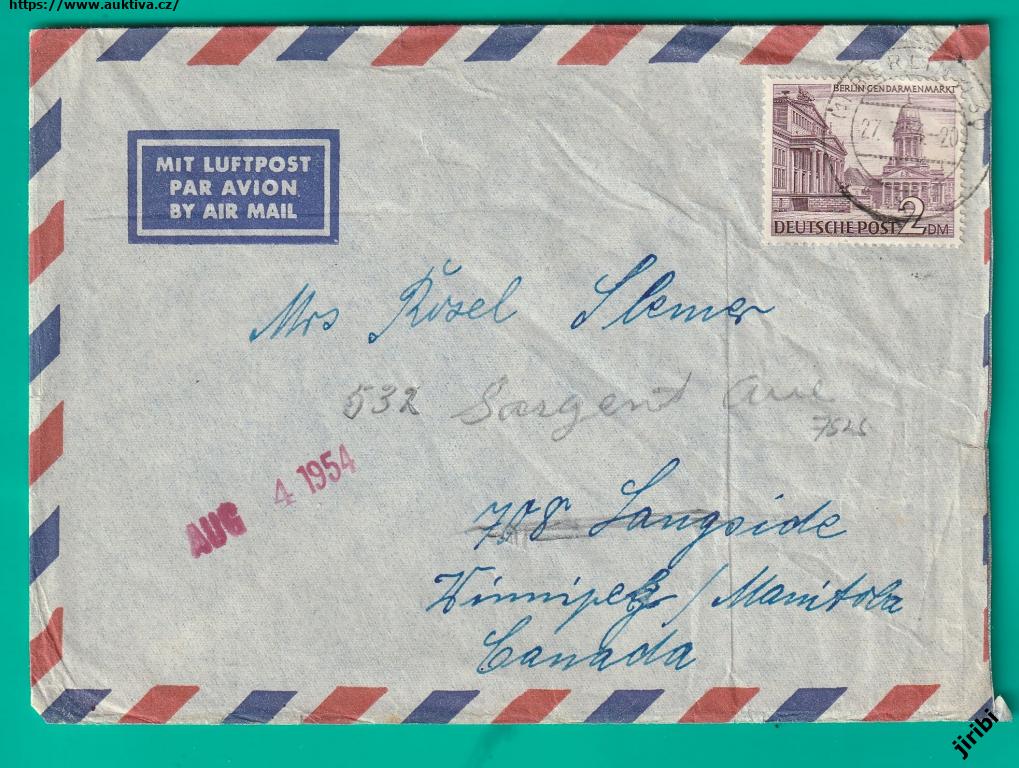 https://www.auktiva.cz/
MIT LUFTPOST
PAR AVION
BY AIR MAIL
BERLIN GENDARMENMARKT
DEUTSCHE POST 2 DM
BERLIN
27.
-20
Mrs Rosel Slemer
532 Sargent Ave
7525
AUG 4 1954
708 Langside
Winnipeg / Manitoba
Canada
jiribi